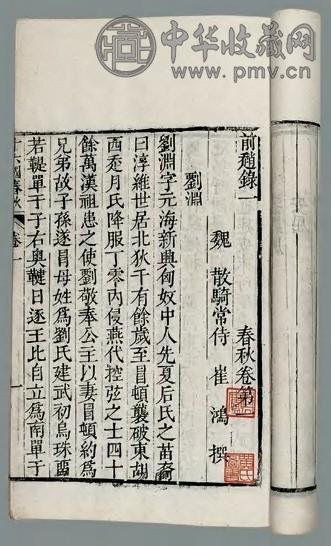 中华收藏网
www.pmv.cn
前趙錄一 春秋卷第
魏 散騎常侍 崔鴻 撰
劉淵
劉淵字元海新興匈奴中人先夏后氏之苗裔
曰淳維世居北狄千有餘歲至冒頓襲破東胡
西走月氏降服丁零內侵燕代控弦之士四十
餘萬漢祖患之使劉敬奉公主以妻冒頓約爲
兄弟故子孫遂冒母姓爲劉氏建武初烏珠留
若鞮單于子右奧鞬日逐王比自立爲南單于
十六國春秋 卷一 一